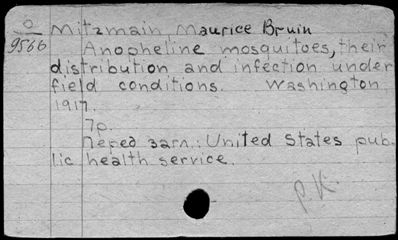 O
9566
Mitzmain, Maurice Bruin
Anopheline mosquitoes, their
distribution and infection under
field conditions. Washington
1917.
7p.
Перед загл.: United States pub-
lic health service.
р.К.